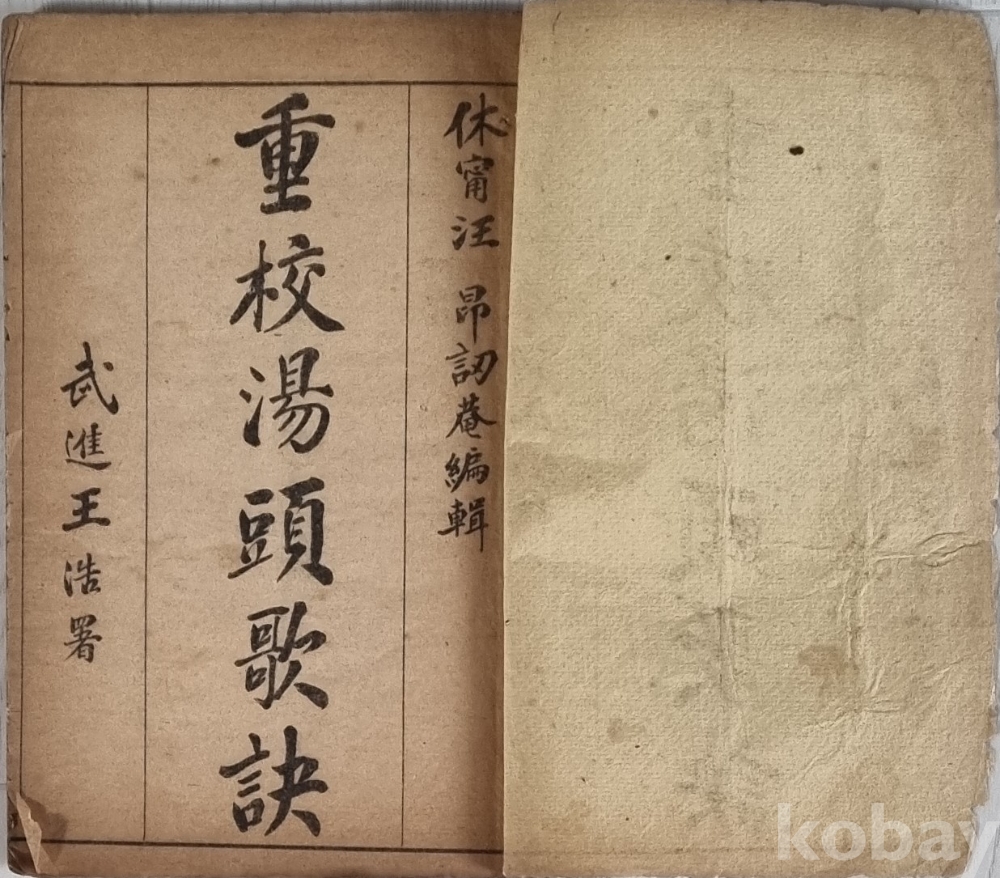 休甯汪 昂訒菴編輯
重校湯頭歌訣
武進王浩署
kobay